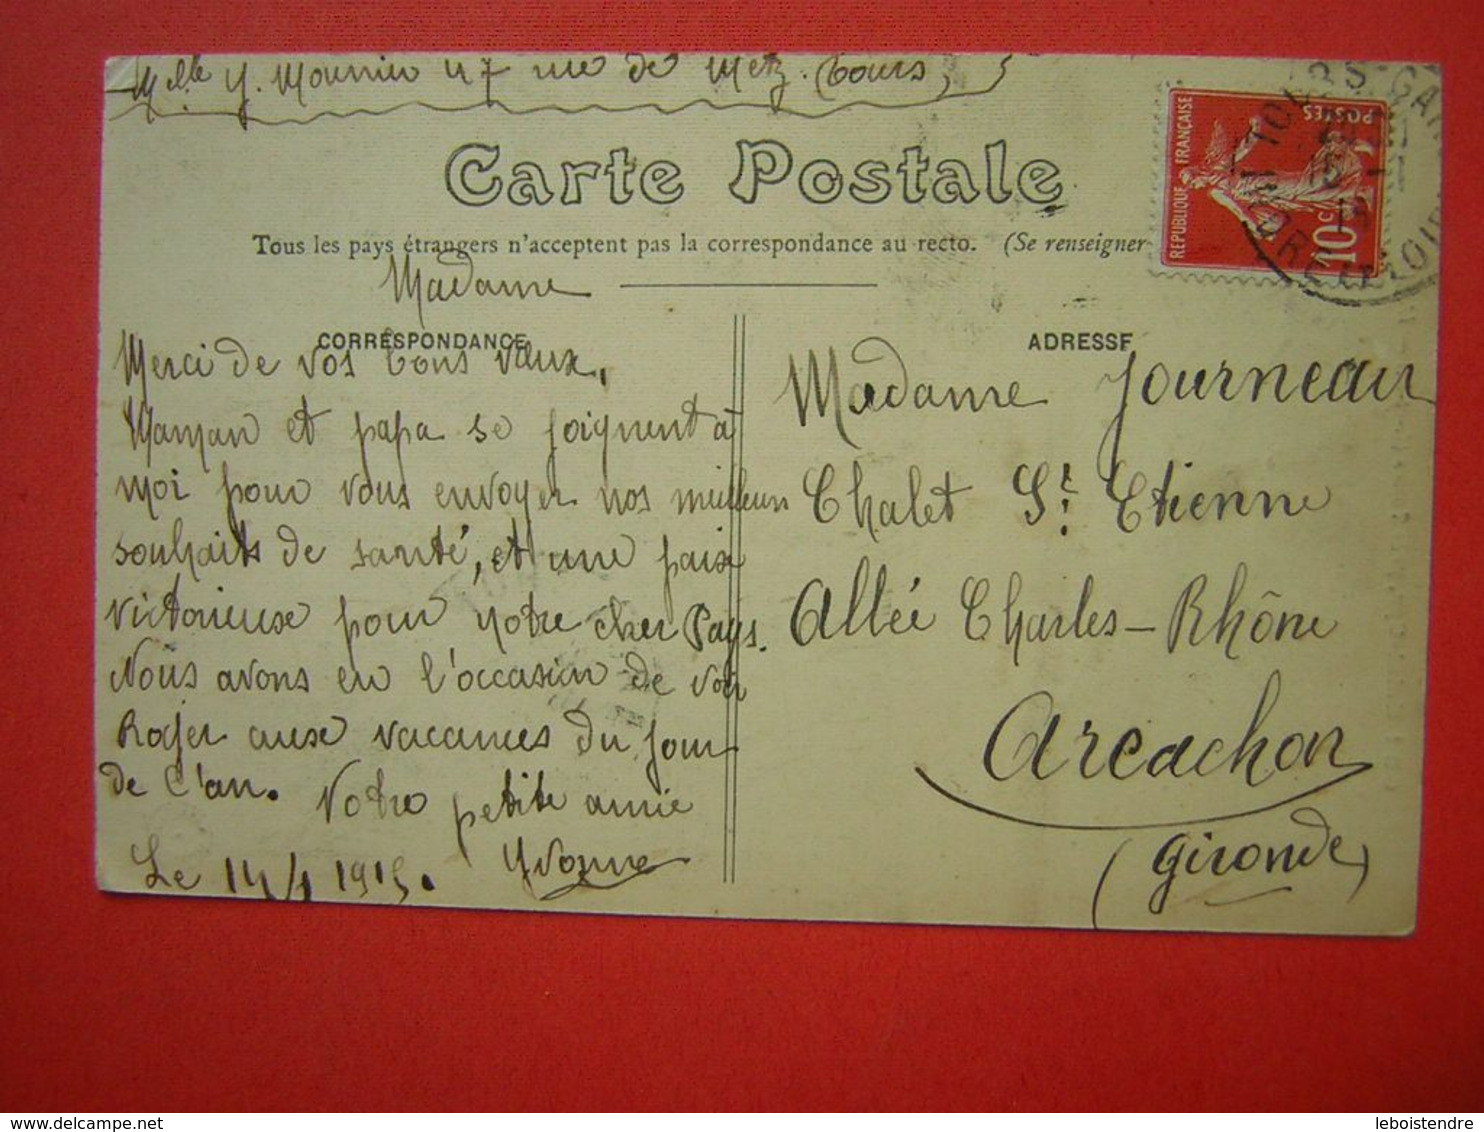 Melle Y. Mounier 47 rue de Metz. (Tours)
Carte Postale
Tous les pays étrangers n'acceptent pas la correspondance au recto. (Se renseigner
REPUBLIQUE FRANÇAISE
POSTES
10c
TOURS-GARE
INDRE-ET-LOIRE
Madame
CORRESPONDANCE
Merci de vos bons vœux.
Maman et papa se joignent à
moi pour vous envoyer nos meilleurs
souhaits de santé, et une paix
victorieuse pour notre cher Pays.
Nous avons eu l'occasion de voir
Roger aux vacances du jour
de l'an. Votre petite amie
Yvonne
Le 14/1 1915.
ADRESSE
Madame Journeau
Chalet St. Etienne
Allée Charles-Rhône
Arcachon
(Gironde)
leboistendre